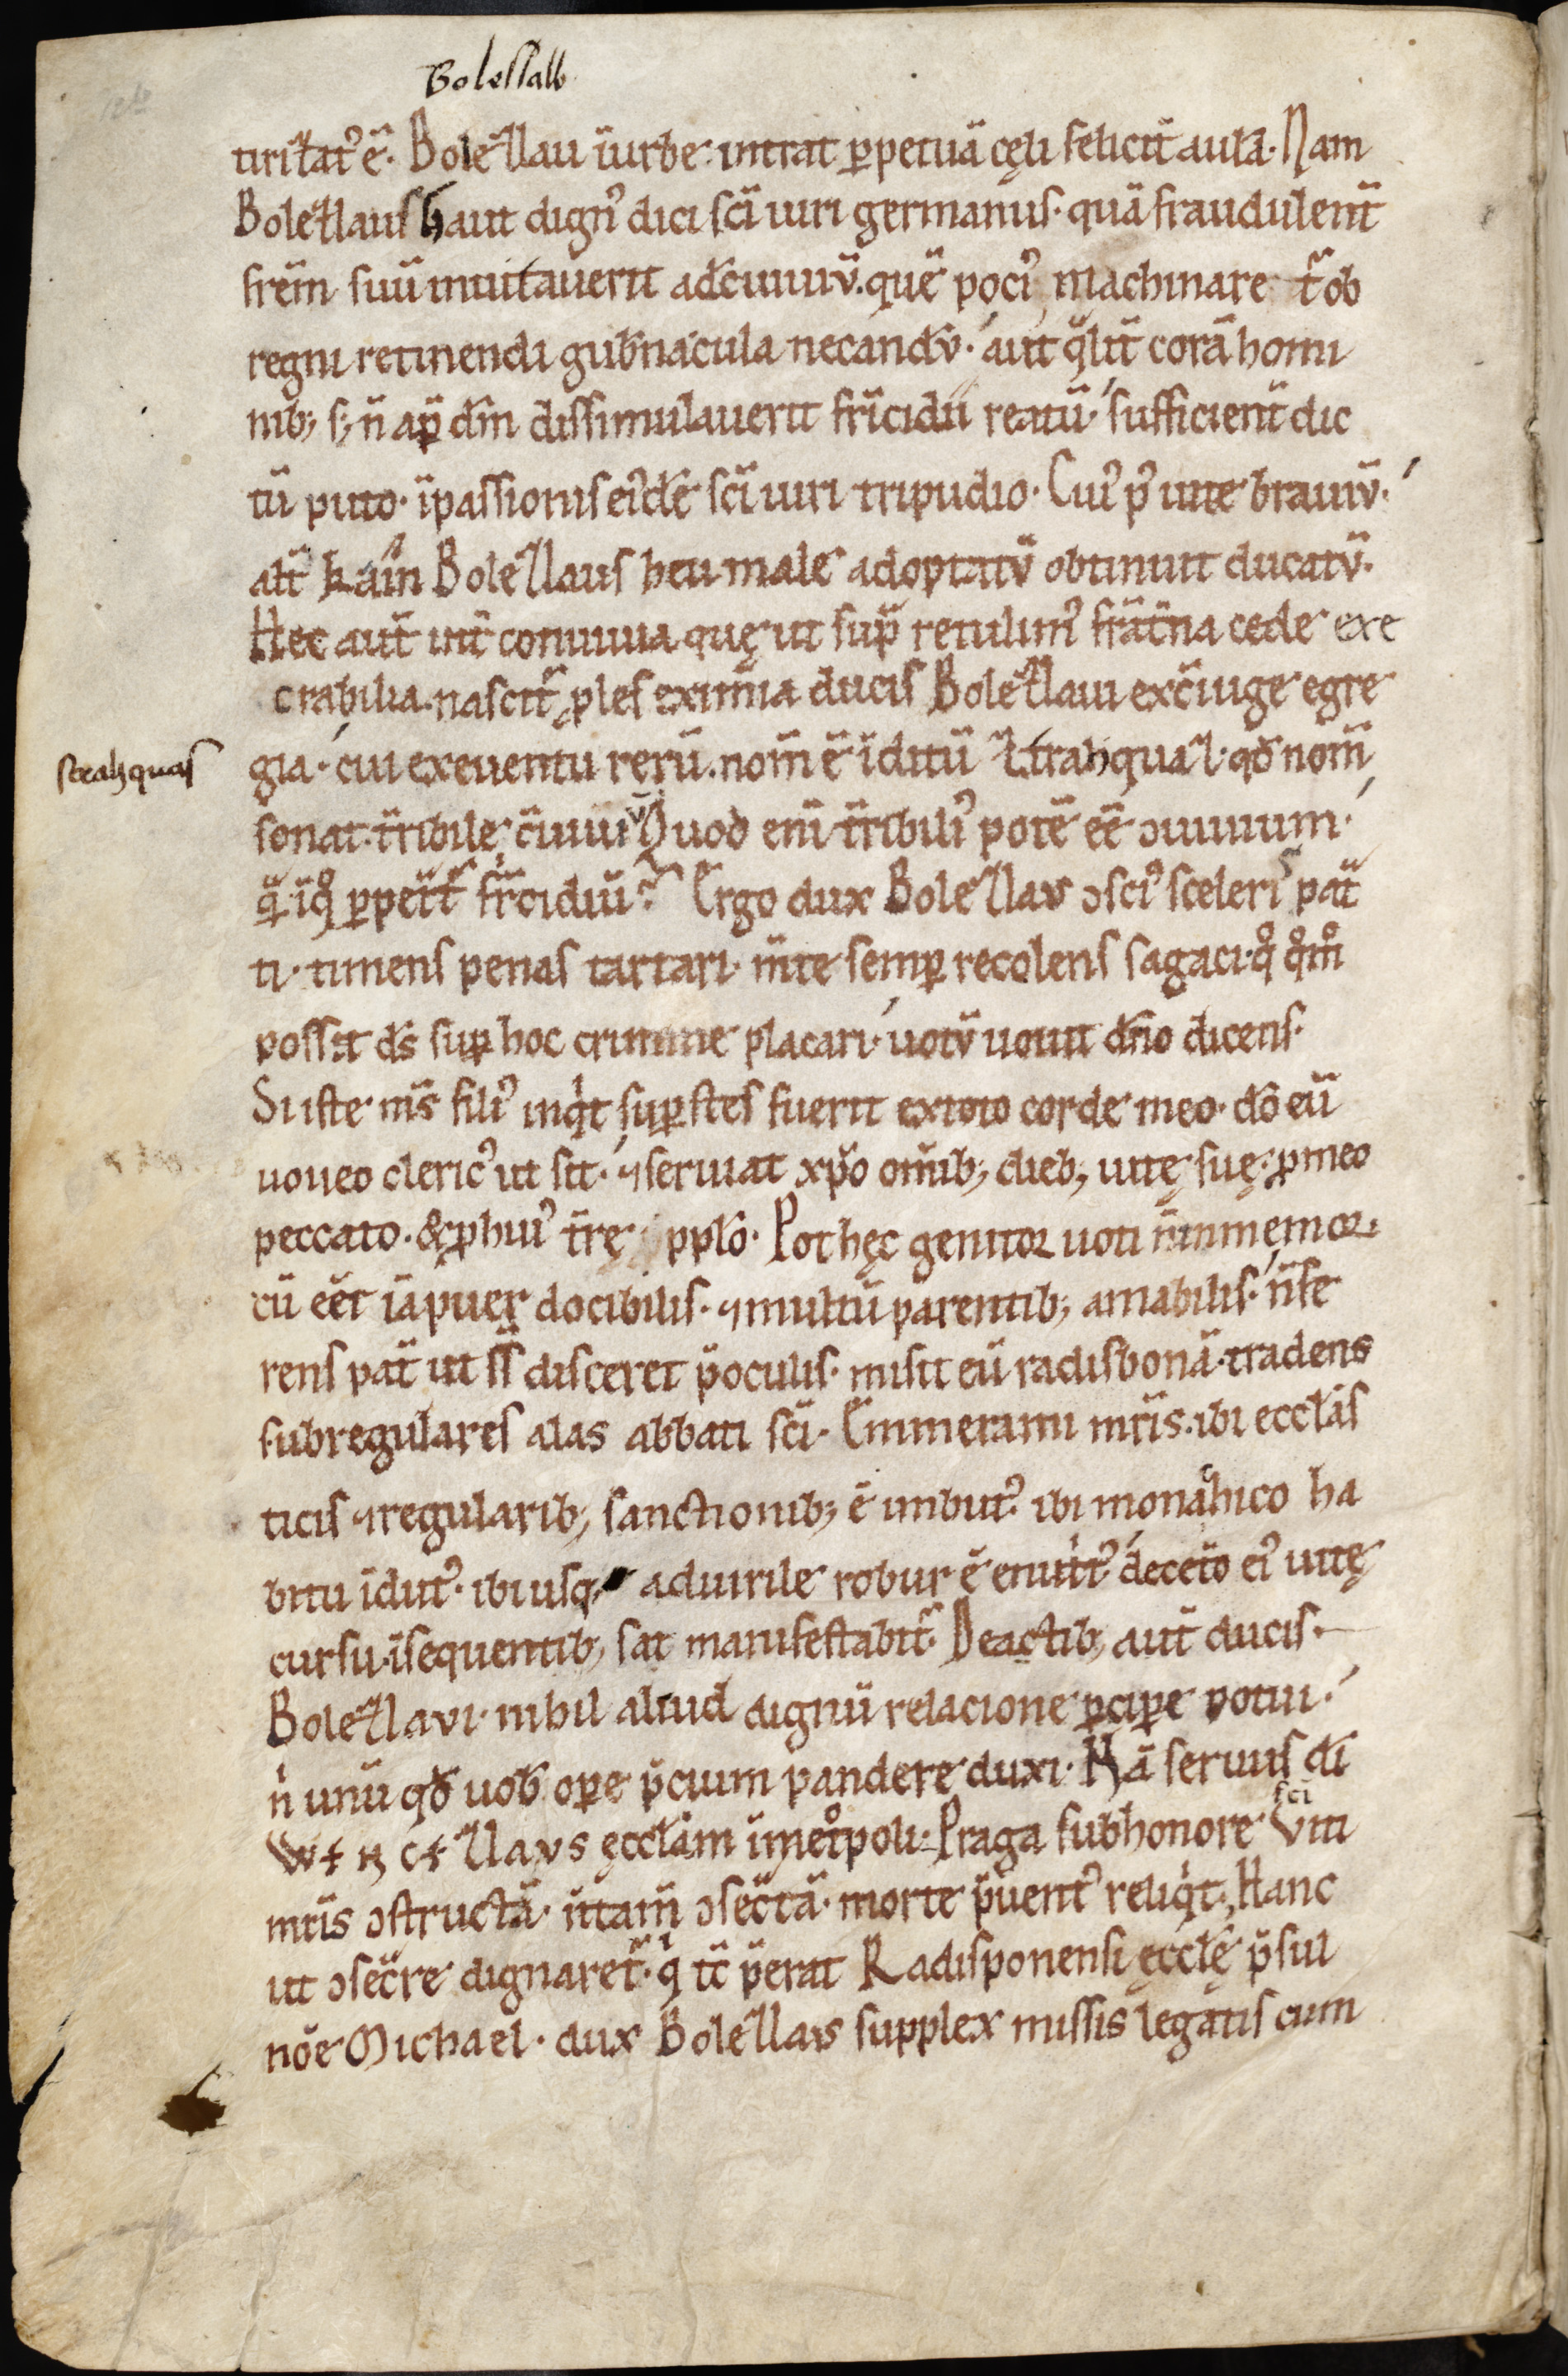 Bolessalb
tirizat᷒ ē. Bolezlau īurbe intrat ꝑpetuā cęli feliciť aulā. Nam
Bolezlaus haut dign᷒ dici sc̄i uiri germanus. quā fraudulenť
fr̄em suū inuitauerit adc̄uiuiū. quē poci᷒ machinaret᷒ ob
regni retinendi gub̄nacula necandū. aut qͣlit̄ corā homi
nib; s; n̄ aꝑ dm̄ dissimulauerit fr̄icidii reatū. sufficient̄ dic
tū puto. ī passionis ei᷒dē sc̄i uiri tripudio. Cui᷒ p᷒ uite brauiū.
alt̄ kain Bolezlaus heu male adoptatū obtinuit ducatū.
Hec aut̄ int̄ conuiuia quę ut sup̄ retulim᷒ frāt̄na cede exe
crabilia. nascit᷒ ꝓles eximia ducis Bolezlaui ex c̄iuge egre
gia. cui ex euentu rerū. nom̄ ē īditū Ztrahquaz. qđ nom̄
sonat. t̄ribile c̄uiuiū Quod eni t̄ribili᷒ potē eē ɔuiuium.
qͣ ī qͦ ꝑpetͣt᷒ fr̄cidiū? Ergo dux Bolezlaus ɔsci᷒ sceleris pat̄
ti. timens penas tartari. m̄te semꝑ recolens sagaci. qͦ qͦm̊
possit ds̄ suꝑ hoc crimine placari. uotū uouit dn̄o dicens.
Si iste m̄s fili᷒ inqͥt suꝑstes fuerit ex toto corde meo. dō eū
uoueo cleric᷒ ut sit. ⁊ seruiat xp̄o om̄ib; dieb; uitę suę. ꝓ meo
peccato. & ꝓ hui᷒ t̄rę pplo. Post hęc genitor uoti n̄ inmemor.
cū eēt iā puer docibilis. ⁊ multū parentib; amabilis. n̄ fe
rens pat̄ ut s̄s̄ disceret p̄ oculis. misit eū radisbonā. tradens
sub regulares alas abbati sc̄i. Emmerami mr̄is. ibi eccłas
ticis ⁊ regularib; sanctionib; ē imbut᷒ ibi monachico ha
bitu īdut᷒. ibi usq; ad uirile robur ē enutͥt᷒ de ceto ei᷒ uitę
cursu. ī sequentib; sat manifestabit᷒. De actib; aut̄ ducis
Bolezlavi. nihil aliud dignū relacione ꝑciꝑe potui.
nͥ unū qđ uob̄ oꝑe p̄cium pandere duxi. Nā seruus dī
Wenceslavs ęccłam ī met̊poli Praga sub honore sc̄i Viti
mr̄is ɔstructā. n̄ tam̄ ɔsec̄tā. morte p̄uent᷒ reliqͥt. Hanc
ut ɔsec̄re dignaret᷒. qͥ tc̄ p̄erat Radisponensi ęccłę p̄sul
noē Michael. dux Bolezlavs supplex missis legatis cum
strahquas